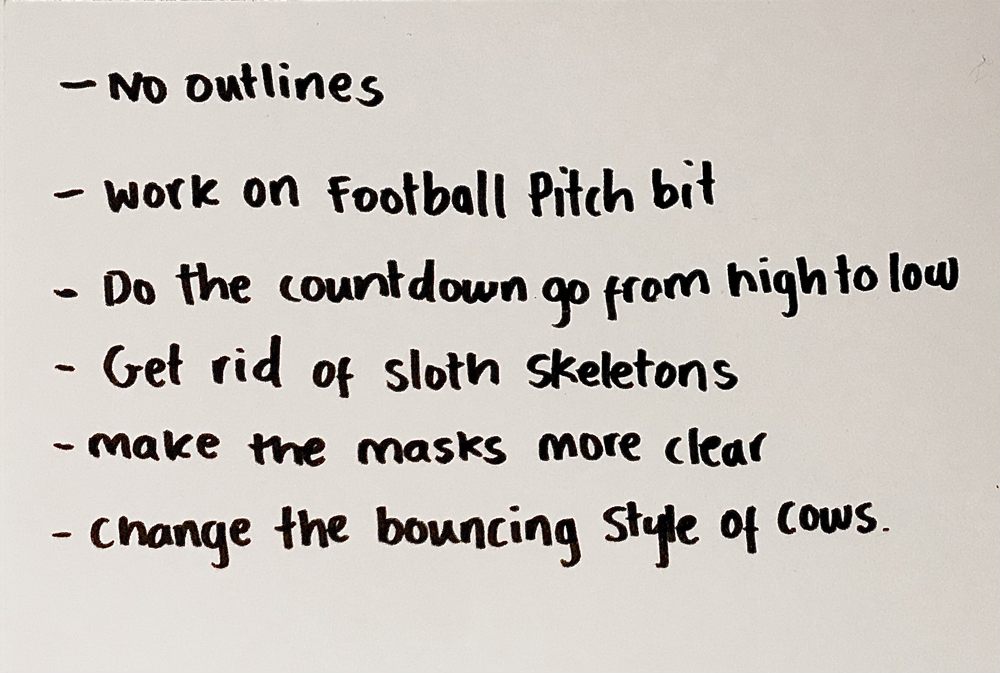 - No outlines
- work on Football Pitch bit
- Do the countdown go from high to low
- Get rid of sloth skeletons
- make the masks more clear
- change the bouncing style of cows.